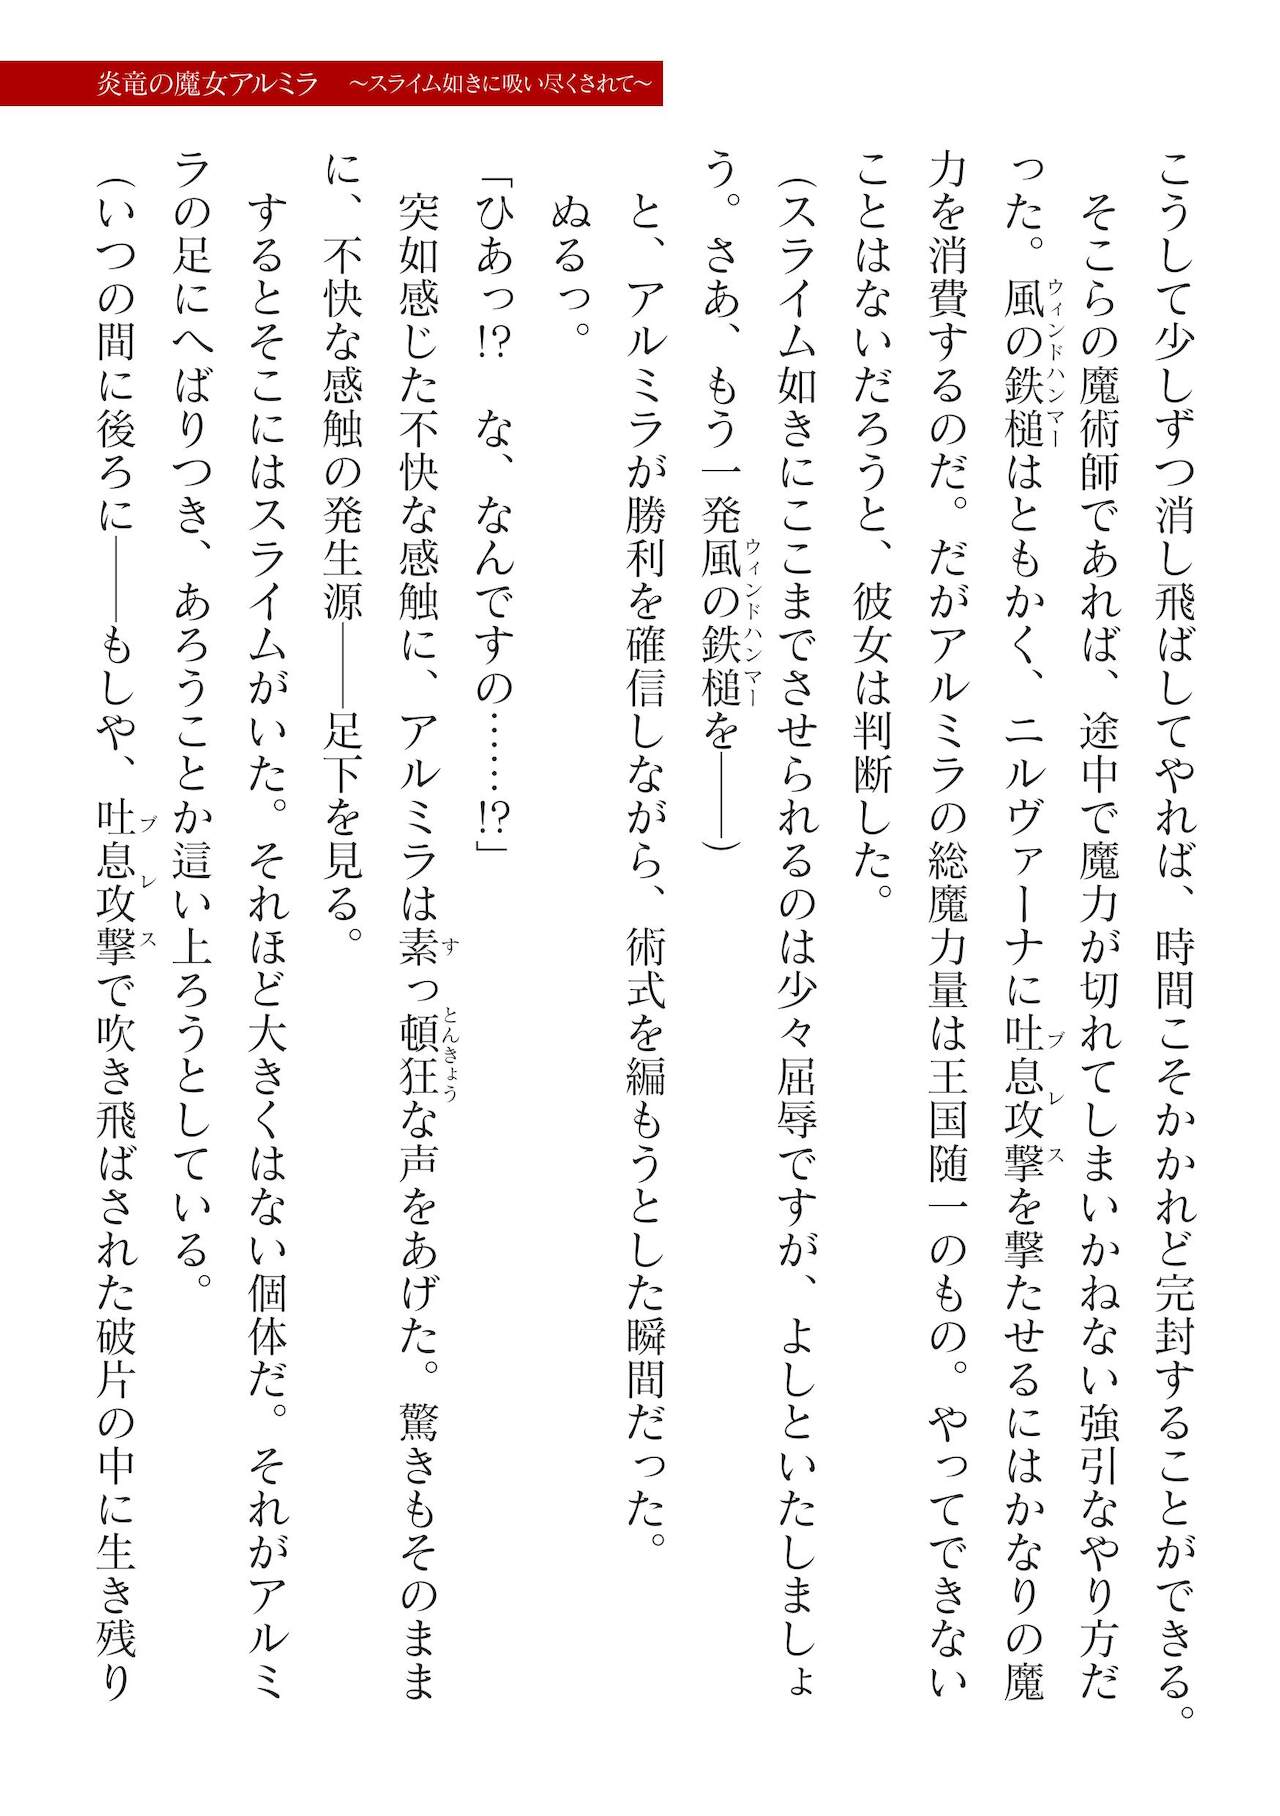 炎竜の魔女アルミラ　～スライム如きに吸い尽くされて～
こうして少しずつ消し飛ばしてやれば、時間こそかかれど完封することができる。
　そこらの魔術師であれば、途中で魔力が切れてしまいかねない強引なやり方だ
った。風の鉄槌はともかく、ニルヴァーナに吐息攻撃を撃たせるにはかなりの魔
ウィンドハンマー
ブレス
力を消費するのだ。だがアルミラの総魔力量は王国随一のもの。やってできない
ことはないだろうと、彼女は判断した。
（スライム如きにここまでさせられるのは少々屈辱ですが、よしといたしましょ
う。さあ、もう一発風の鉄槌を――）
ウィンドハンマー
　と、アルミラが勝利を確信しながら、術式を編もうとした瞬間だった。
　ぬるっ。
「ひあっ!?　な、なんですの……!?」
　突如感じた不快な感触に、アルミラは素っ頓狂な声をあげた。驚きもそのまま
す
とんきょう
に、不快な感触の発生源――足下を見る。
　するとそこにはスライムがいた。それほど大きくはない個体だ。それがアルミ
ラの足にへばりつき、あろうことか這い上ろうとしている。
（いつの間に後ろに――もしや、吐息攻撃で吹き飛ばされた破片の中に生き残り
ブレス